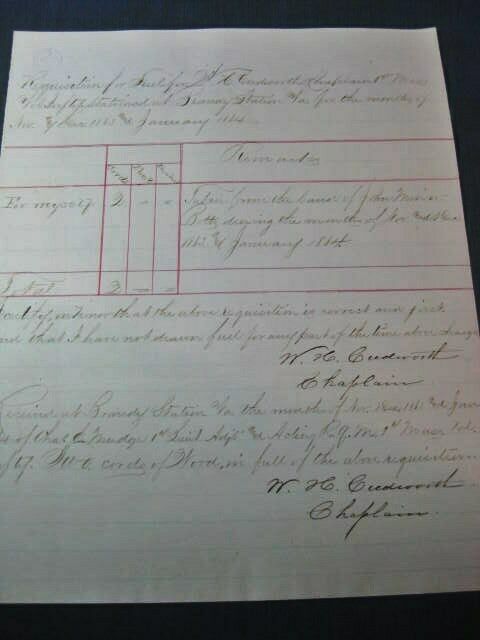 Requisition for Fuel for W H Cudworth Chaplain 1st Mass
Vol Inf'y stationed at Brandy Station Va for the months of
Nov & Dec 1863 & January 1864
Cords
Remarks
For myself 2 - -
Taken from the land of John Minor
Botts during the months of Nov and Dec
1863 & January 1864
Total 2 - -
I certify on honor that the above requisition is correct and just
and that I have not drawn fuel for any part of the time above charged
W. H. Cudworth
Chaplain
Received at Brandy Station Va the months of Nov. Dec 1863 and Jan
of Chas E Mudge 1st Lieut Adjt and Acting R.Q.M. 1st Mass Vol
Inf'y. Two cords of Wood, in full of the above requisition
W. H. Cudworth
Chaplain.